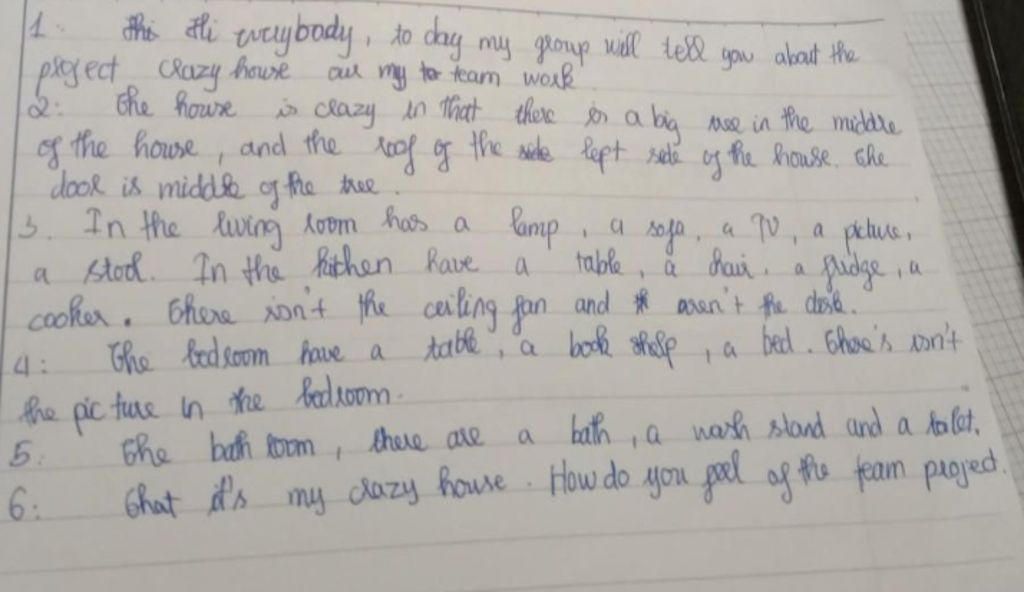 1. Hi everybody, to day my group will tell you about the
project crazy house our my team work
2: The house is crazy in that there is a big tree in the middle
of the house, and the roof of the left side of the house. The
door is middle of the tree.
3. In the living room has a lamp, a sofa, a TV, a picture,
a stool. In the kithen have a table, a chair, a fridge, a
cooker. There isn't the ceiling fan and aren't the desk.
4: The bedroom have a table, a book shelf, a bed. There's isn't
the pic ture in the bedroom.
5: The bath room, there are a bath, a wash stand and a toilet.
6: That it's my crazy house. How do you feel of the team project.